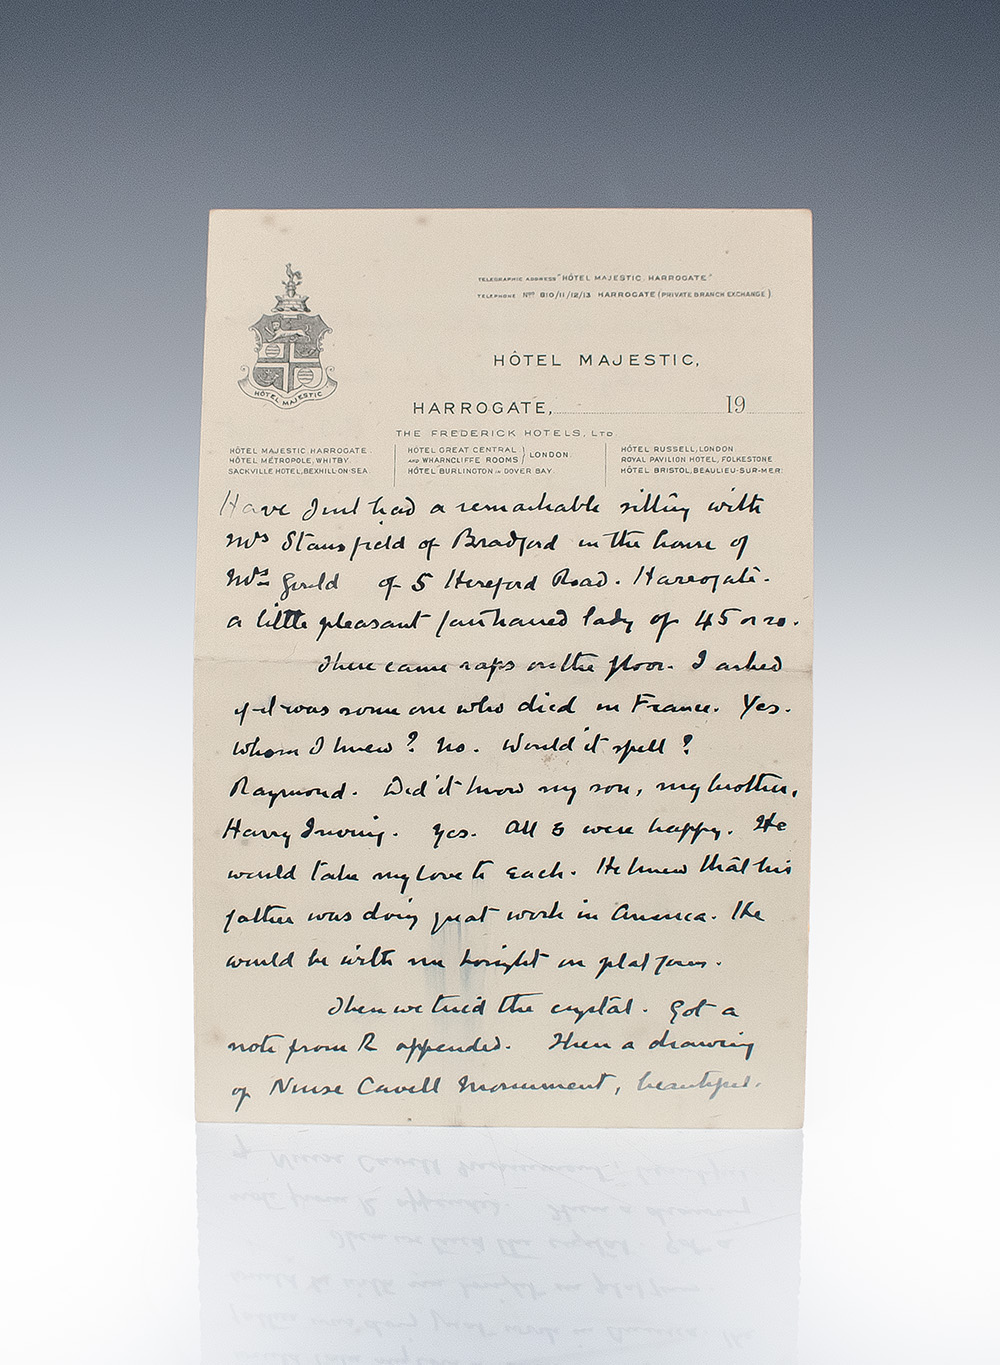 TELEGRAPHIC ADDRESS "HÔTEL MAJESTIC, HARROGATE"
TELEPHONE Nos 810/11/12/13 HARROGATE (PRIVATE BRANCH EXCHANGE)
HÔTEL MAJESTIC
HÔTEL MAJESTIC,
HARROGATE, 19
THE FREDERICK HOTELS, LTD
HÔTEL MAJESTIC HARROGATE.
HÔTEL MÉTROPOLE, WHITBY.
SACKVILLE HOTEL, BEXHILL-ON-SEA.
HÔTEL GREAT CENTRAL
AND WHARNCLIFFE ROOMS } LONDON.
HÔTEL BURLINGTON IN DOVER BAY.
HÔTEL RUSSELL, LONDON.
ROYAL PAVILION HOTEL, FOLKESTONE
HÔTEL BRISTOL, BEAULIEU-SUR-MER.
Have Just had a remarkable sitting with
Mrs Stansfield of Bradford in the house of
Mrs Gould of 5 Hereford Road. Harrogate.
a little pleasant fairhaired lady of 45 or so.
There came raps on the floor. I asked
if it was some one who died in France. Yes.
Whom I knew? No. Would it spell?
Raymond. Did it know my son, my brother,
Harry Irving. Yes. All 3 were happy. He
would take my love to each. He knew that his
father was doing great work in America. He
would be with me tonight on platform.
Then we tried the crystal. Got a
note from R appended. Then a drawing
of Nurse Cavell Monument, beautiful.